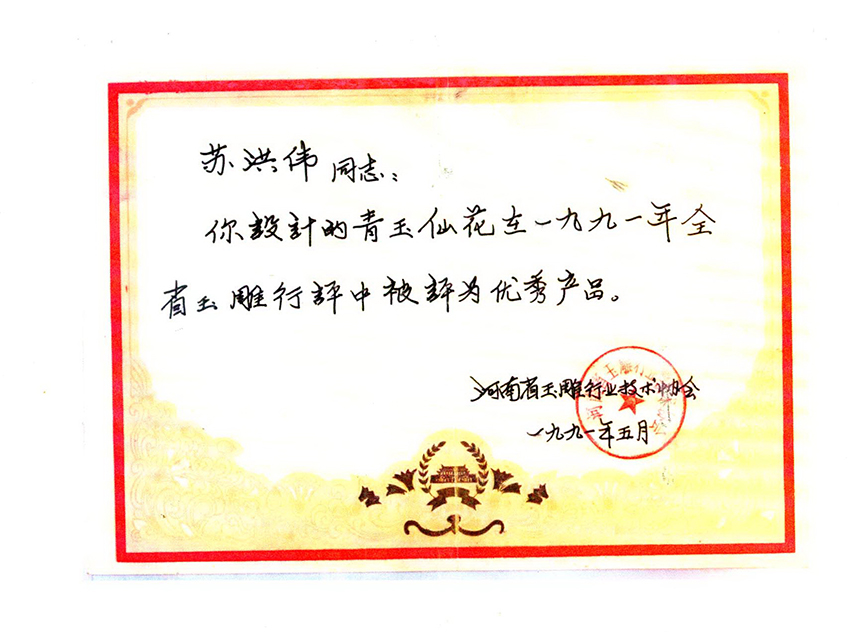 苏洪伟同志：
你設計的青玉仙花在一九九一年全
省玉雕行評中被評为优秀产品。
河南省玉雕行业技术协会
一九九一年五月